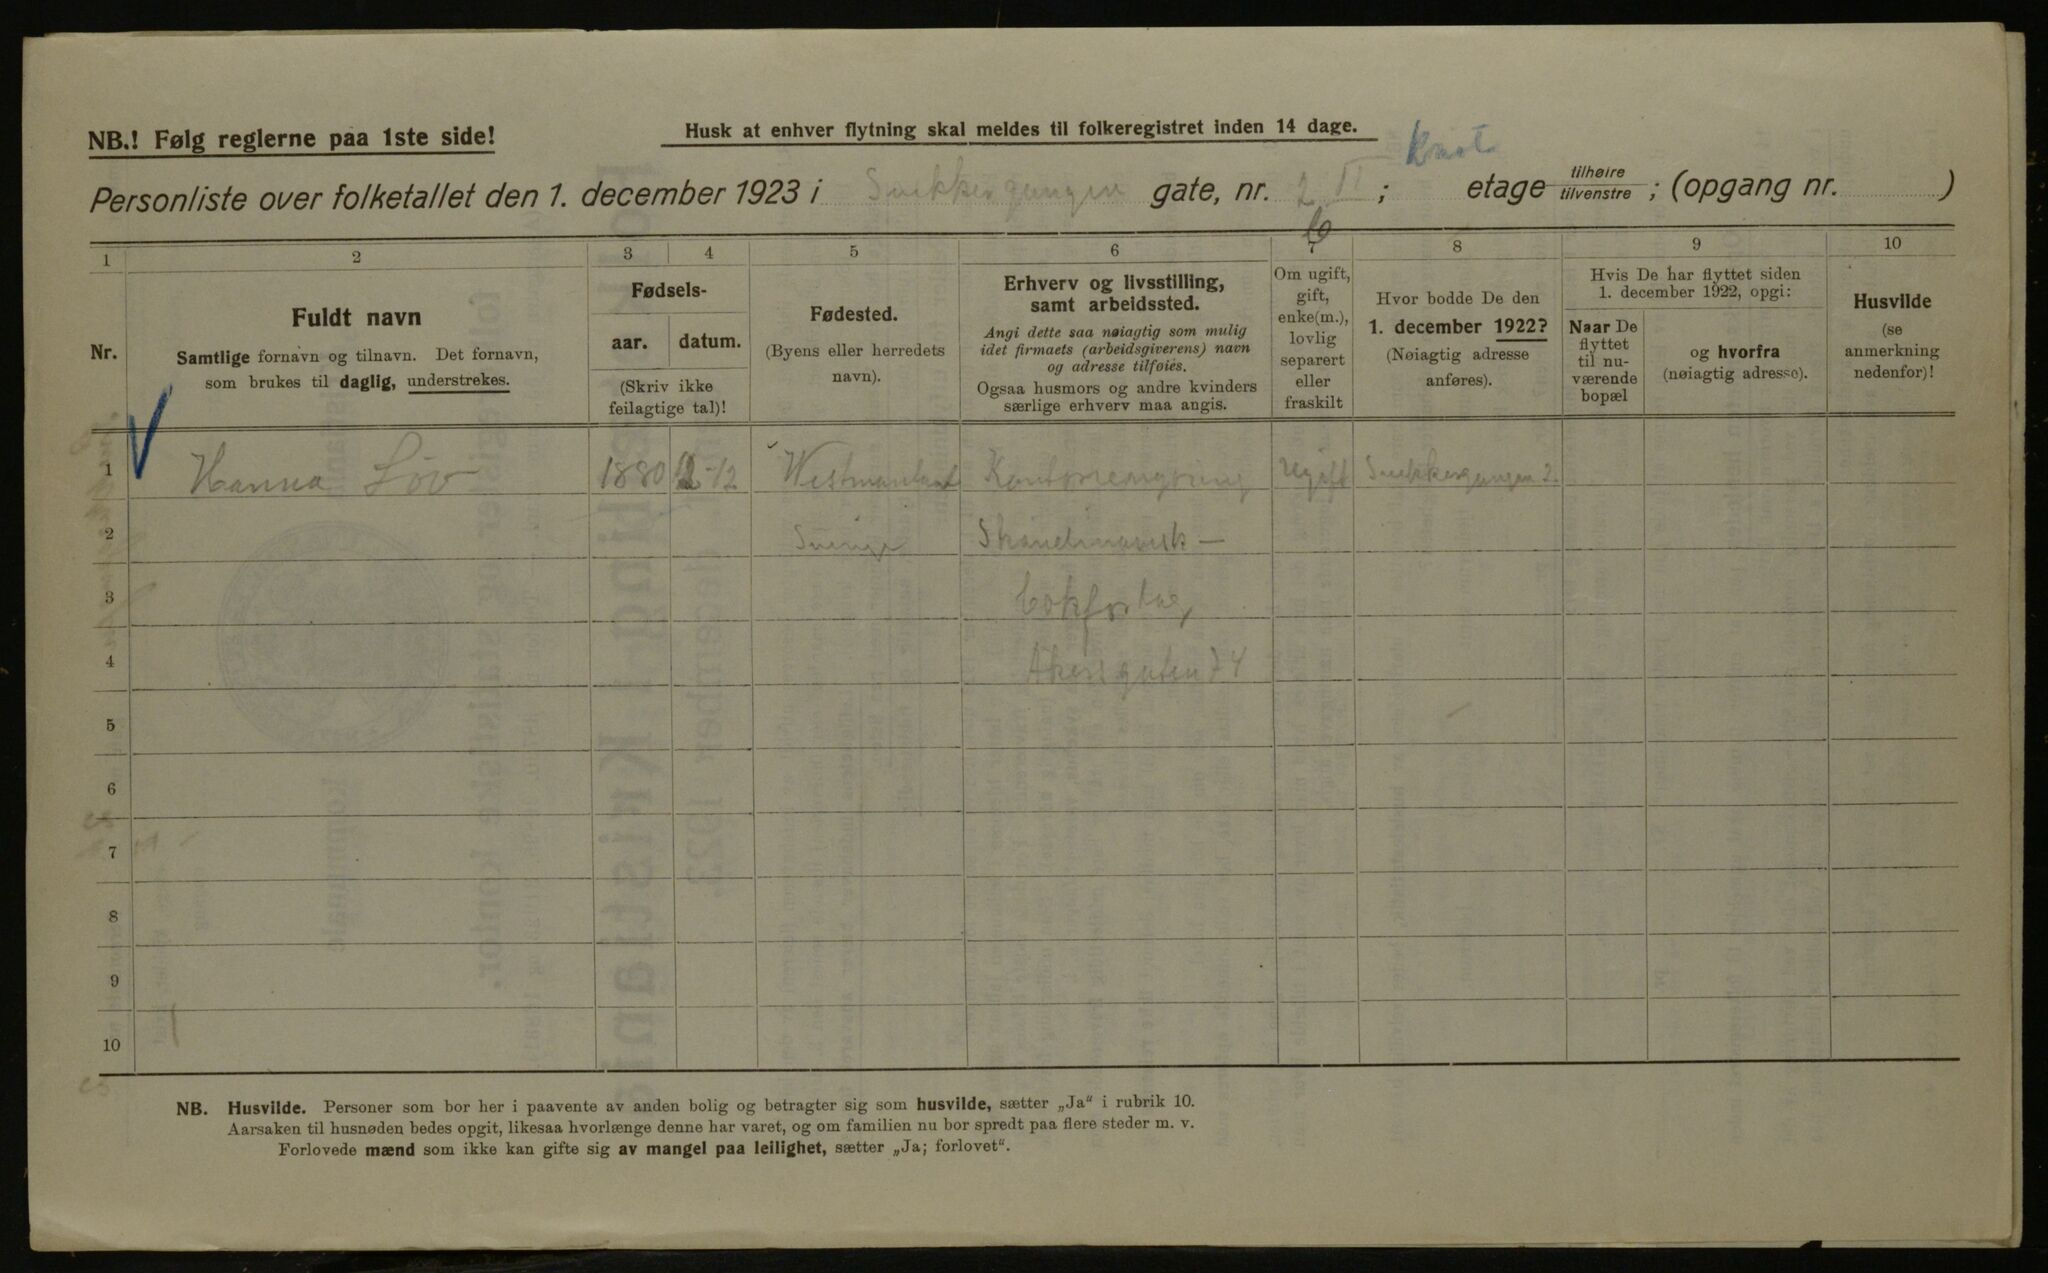 NB.! Følg reglerne paa 1ste side!
Husk at enhver flytning skal meldes til folkeregistret inden 14 dage.
Kvist
Personliste over folketallet den 1. december 1923 i Snekkergangen gate, nr. 2 II ; etage tilhøire tilvenstre ; (opgang nr. )
1 2 3 4 5 6 7 8 9 10
Nr.
Fuldt navn
Samtlige fornavn og tilnavn. Det fornavn,
som brukes til daglig, understrekes.
Fødsels-
aar. datum.
(Skriv ikke
feilagtige tal)!
Fødested.
(Byens eller herredets
navn).
Erhverv og livsstilling,
samt arbeidssted.
Angi dette saa nøiagtig som mulig
idet firmaets (arbeidsgiverens) navn
og adresse tilføies.
Ogsaa husmors og andre kvinders
særlige erhverv maa angis.
Om ugift,
gift,
enke(m.),
lovlig
separert
eller
fraskilt
Hvor bodde De den
1. december 1922?
(Nøiagtig adresse
anføres).
Hvis De har flyttet siden
1. december 1922, opgi:
Naar De
flyttet
til nu-
værende
bopæl
og hvorfra
(nøiagtig adresse).
Husvilde
(se
anmerkning
nedenfor)!
1 Hanna Löv 1880 12-12 Westmanland Kontorrengjöring Ugift Snekkergangen 2.
2 Sverige Skandinavisk –
3
4 Akersgaten 74
5
6
7
8
9
10
NB. Husvilde. Personer som bor her i paavente av anden bolig og betragter sig som husvilde, sætter „Ja“ i rubrik 10.
Aarsaken til husnøden bedes opgit, likesaa hvorlænge denne har varet, og om familien nu bor spredt paa flere steder m. v.
Forlovede mænd som ikke kan gifte sig av mangel paa leilighet, sætter „Ja; forlovet“.